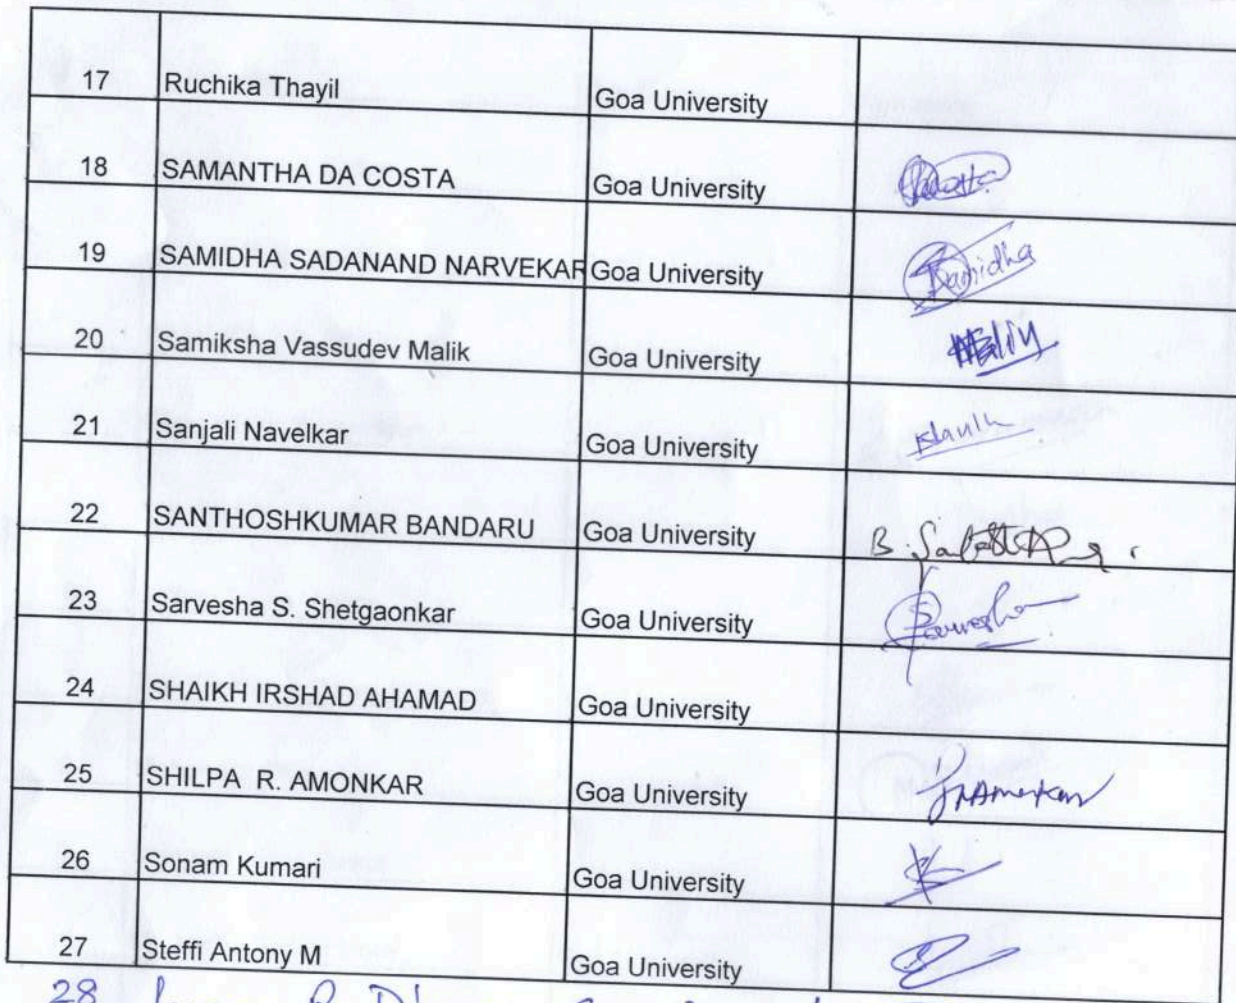 17 Ruchika Thayil Goa University
18 SAMANTHA DA COSTA Goa University
19 SAMIDHA SADANAND NARVEKAR Goa University Samidha
20 Samiksha Vassudev Malik Goa University Malik
21 Sanjali Navelkar Goa University
22 SANTHOSHKUMAR BANDARU Goa University B.
23 Sarvesha S. Shetgaonkar Goa University Sarvesha
24 SHAIKH IRSHAD AHAMAD Goa University
25 SHILPA R. AMONKAR Goa University SRAmonkar
26 Sonam Kumari Goa University
27 Steffi Antony M Goa University
28